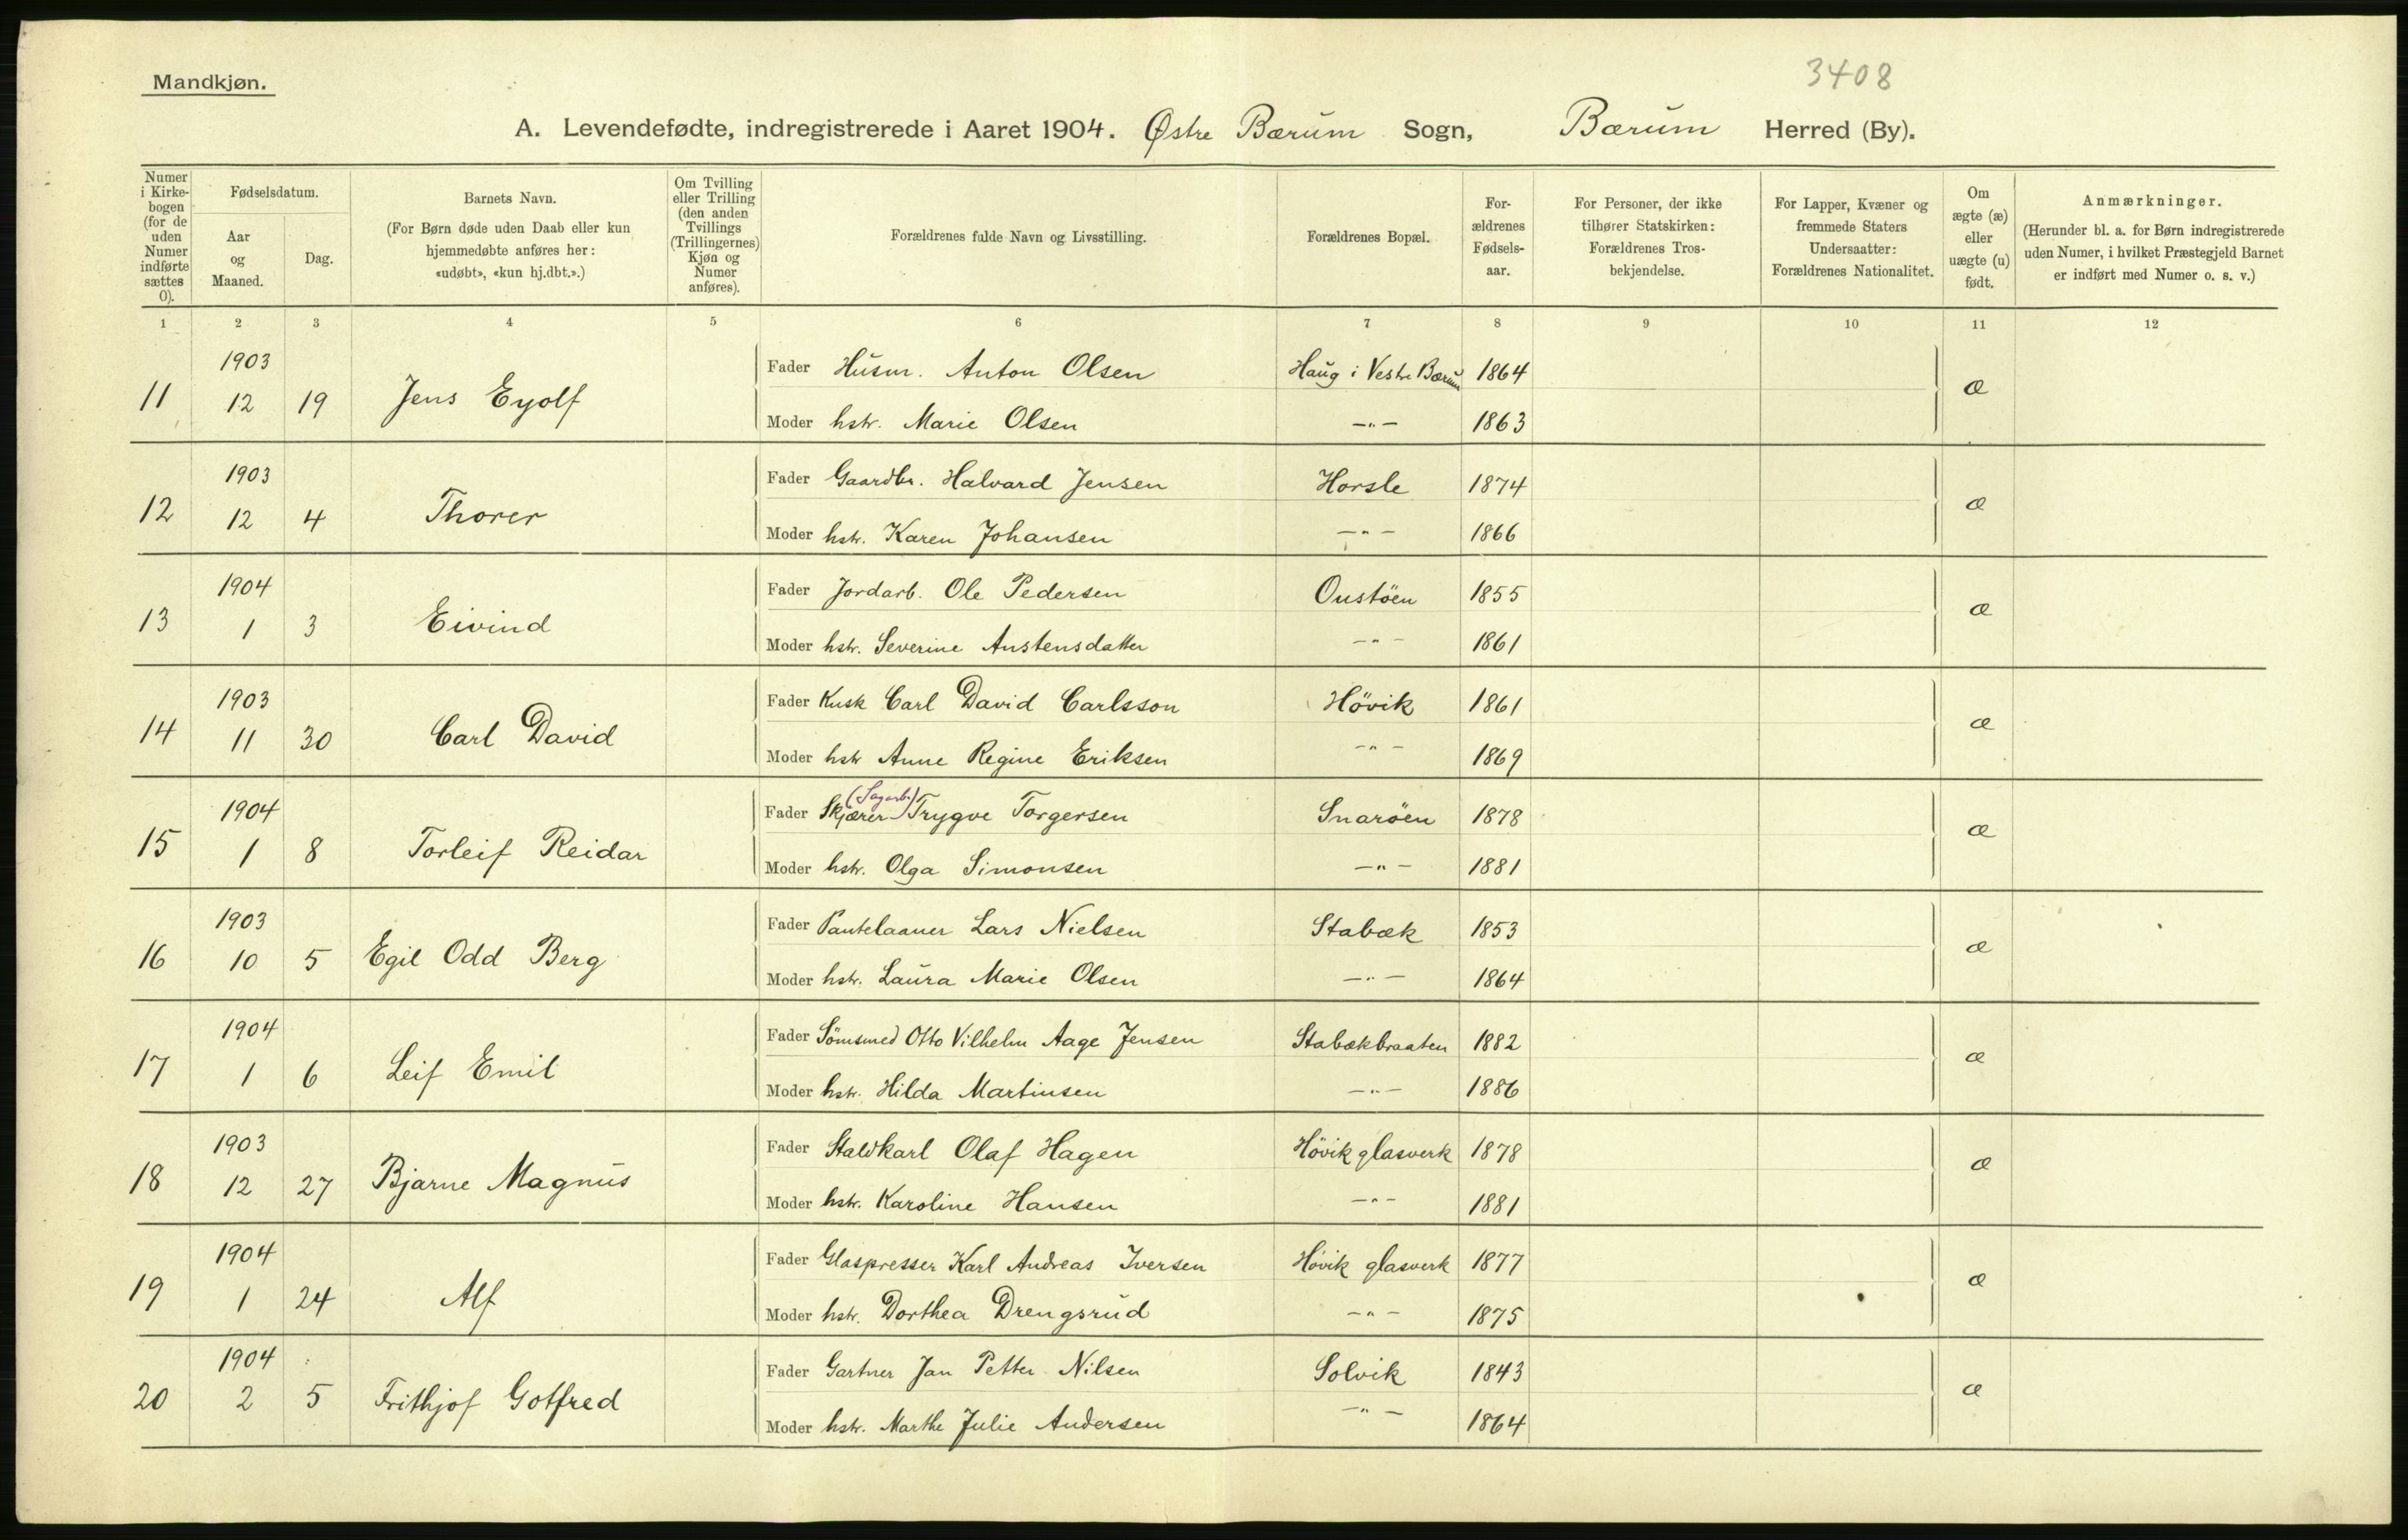 Mandkjøn.
3408
A. Levendefødte, indregistrerede i Aaret 1904. Østre Bærum Sogn, Bærum Herred (By).
Numer i Kirkebogen (for de uden Numer indførte sættes 0).
Fødselsdatum.
Aar og Maaned.
Dag.
Barnets Navn.
(For Børn døde uden Daab eller kun hjemmedøbte anføres her: «udøbt», «kun hj.dbt.».)
Om Tvilling eller Trilling (den anden Tvillings (Trillingernes) Kjøn og Numer anføres).
Forældrenes fulde Navn og Livsstilling.
Forældrenes Bopæl.
Forældrenes Fødselsaar.
For Personer, der ikke tilhører Statskirken: Forældrenes Trosbekjendelse.
For Lapper, Kvæner og fremmede Staters Undersaatter: Forældrenes Nationalitet.
Om ægte (æ) eller uægte (u) født.
Anmærkninger.
(Herunder bl. a. for Børn indregistrerede uden Numer, i hvilket Præstegjeld Barnet er indført med Numer o. s. v.)
1 2 3 4 5 6 7 8 9 10 11 12
1903 Fader Husm. Anton Olsen Haug i Vestre Bærum 1864
11 12 19 Jens Eyolf æ
Moder hstr. Marie Olsen —"— 1863
1903 Fader Gaardbr. Halvard Jensen Horsle 1874
12 12 4 Thorer æ
Moder hstr. Karen Johansen —"— 1866
1904 Fader Jordarb. Ole Pedersen Oustöen 1855
13 1 3 Eivind æ
Moder hstr. Severine Austensdatter —"— 1861
1903 Fader Kusk Carl David Carlsson Hövik 1861
14 11 30 Carl David æ
Moder hstr Anne Regine Eriksen —"— 1869
(Sagarb.)
1904 Fader Skjærer Trygve Torgersen Snaröen 1878
15 1 8 Torleif Reidar æ
Moder hstr. Olga Simonsen —"— 1881
1903 Fader Pantelaaner Lars Nielsen Stabæk 1853
16 10 5 Egil Odd Berg æ
Moder hstr. Laura Marie Olsen —"— 1864
1904 Fader Sömsmed Otto Vilhelm Aage Jensen Stabækbraaten 1882
17 1 6 Leif Emil æ
Moder hstr. Hilda Martinsen —"— 1886
1903 Fader Staldkarl Olaf Hagen Hövik glasverk 1878
18 12 27 Bjarne Magnus æ
Moder hstr. Karoline Hansen —"— 1881
1904 Fader Glaspresser Karl Andreas Iversen Hövik glasverk 1877
19 1 24 Alf æ
Moder hstr. Dorthea Drengsrud —"— 1875
1904 Fader Gartner Jan Petter Nilsen Solvik 1843
20 2 5 Frithjof Gotfred æ
Moder hstr. Marthe Julie Andersen —"— 1864